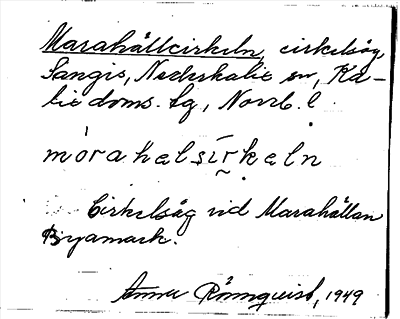 Marahällcirkeln, cirkelsåg,
Sangis, Nederkalix sn, Ka-
lix doms. lg, Norrb. l.
mòrahalsírkeln
Cirkelsåg vid Marahällan
Byamark.
Anna Rönnquist, 1949